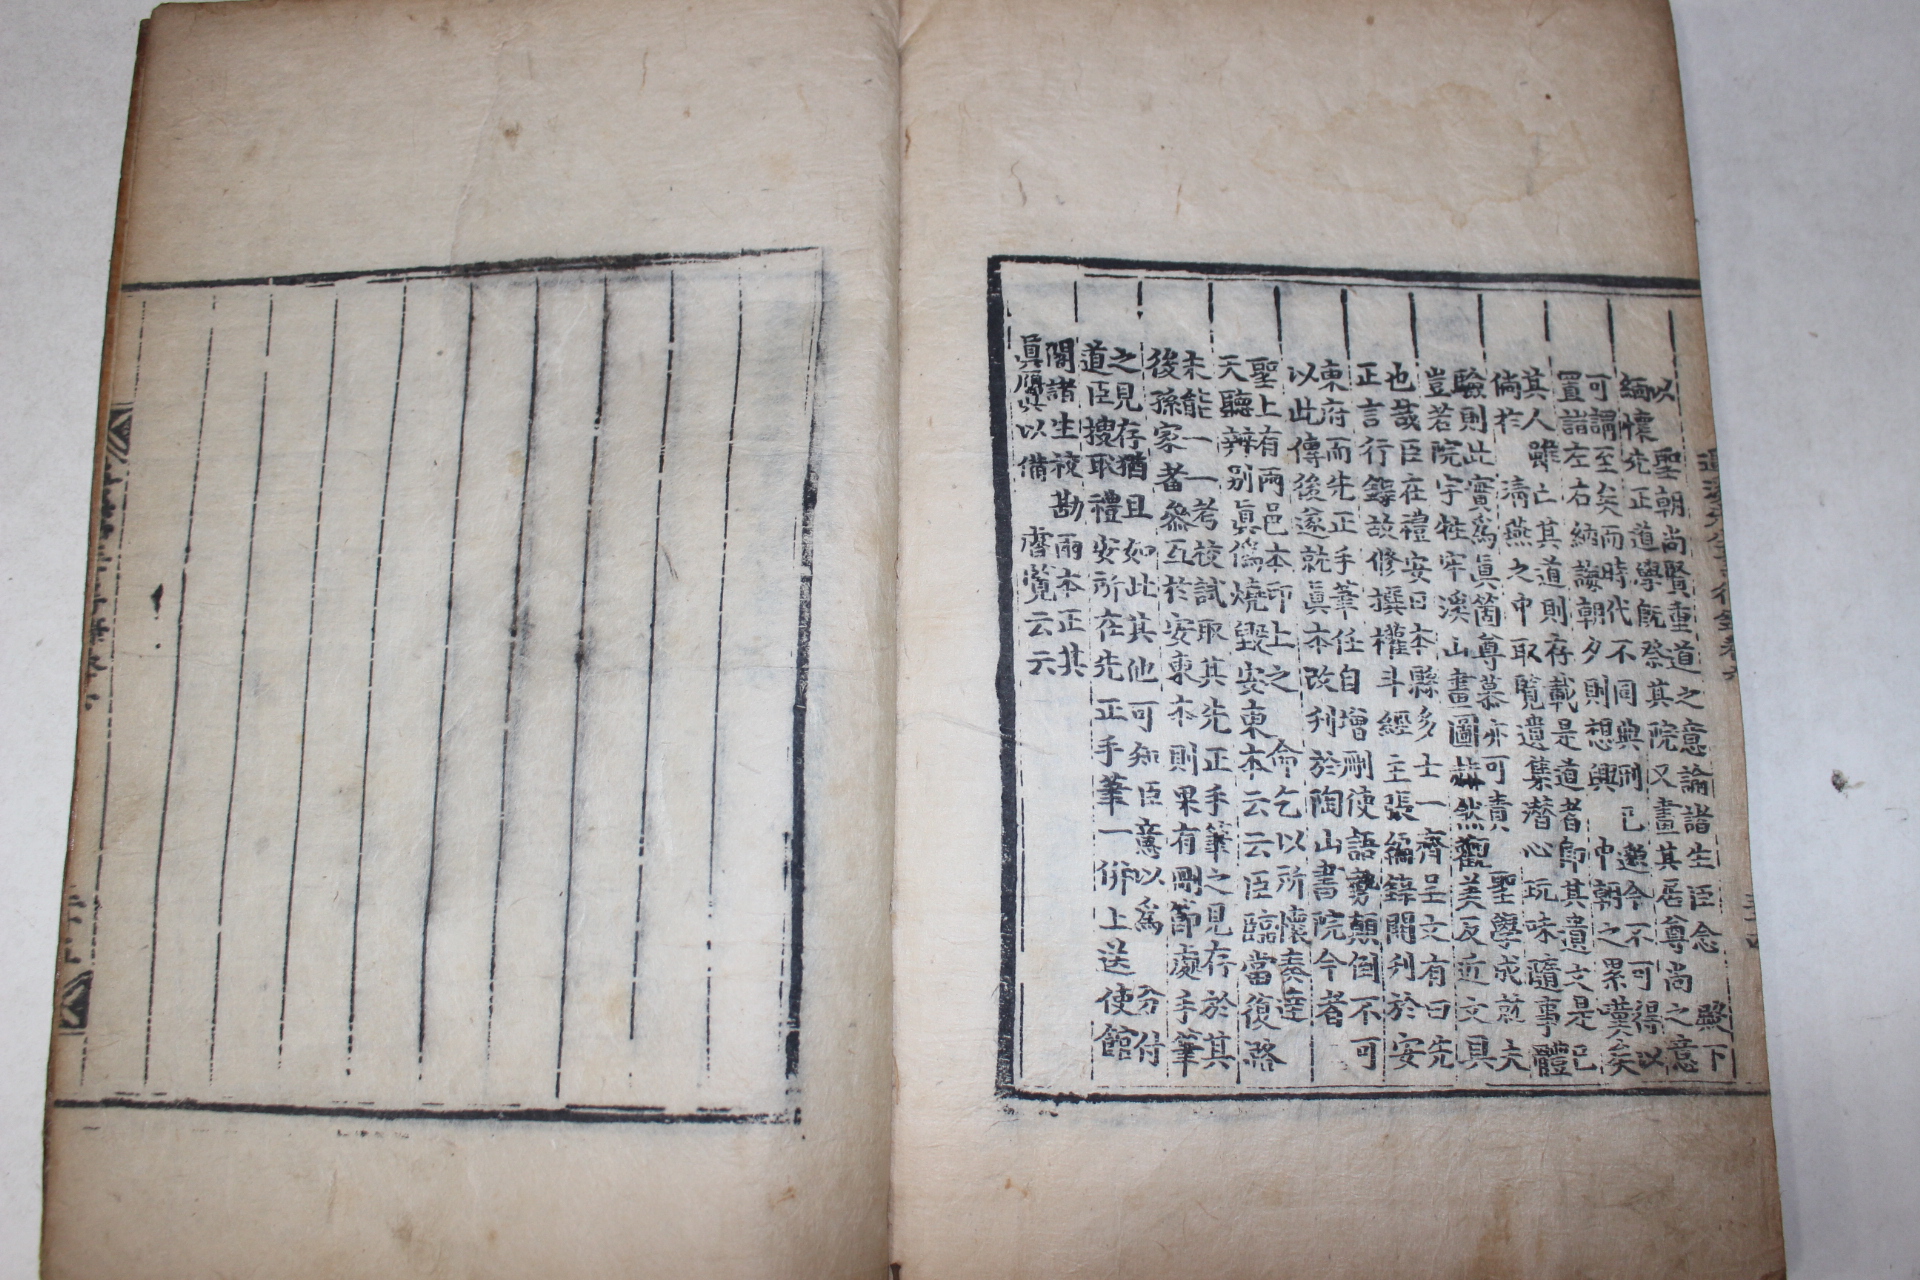 退溪先生言行錄卷六
以　聖朝尚賢重道之意論諸生臣念　殿下
緬懷先正道學旣祭其院又畫其居尊尚之意
可謂至矣而時代不同典刑已邈今不可得以
置諸左右納誨朝夕則想興　中朝之累嘆矣
其人雖亡其道則存載是道者卽其遺文是已
倘於　清燕之中取覽遺集潛心玩味隨事體
驗則此實爲眞箇尊慕亦可責　聖學成就夫
豈若院宇牲牢溪山畫圖赫然觀美反近文具
也哉臣在禮安日本縣多士一齊呈文有曰先
正言行錄故修撰權斗經主張編錄開刋於安
東府而先正手筆任自增刪使語勢顛倒不可
以此傳後遂就眞本改刋於陶山書院今者
聖上有兩邑本印上之　命乞以所懷奏達
天聽辨別眞僞燒毀安東本云云臣臨當復路
未能一一考校試取其先正手筆之見存於其
後孫家者叅互於安東本則果有刪節處手筆
之見存猶且如此其他可知臣意以爲　分付
道臣搜取禮安所在先正手筆一併上送使館
閣諸生校勘兩本正其
眞贋以備　睿覽云云